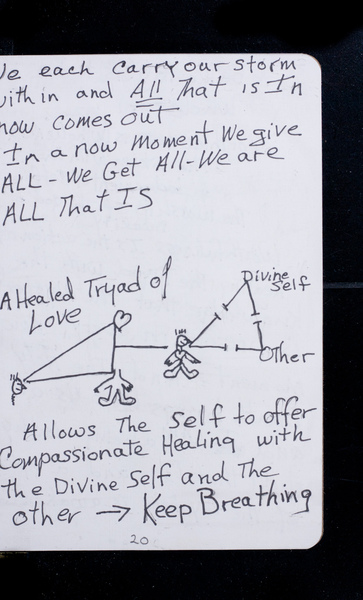 We each carry our storm
within and All That is In
now comes out
In a now moment we give
ALL - We Get All - We are
ALL That IS
A Healed Tryad of
Love
Divine
Self
Other
Allows The Self to offer
Compassionate Healing with
the Divine Self and The
other → Keep Breathing
20